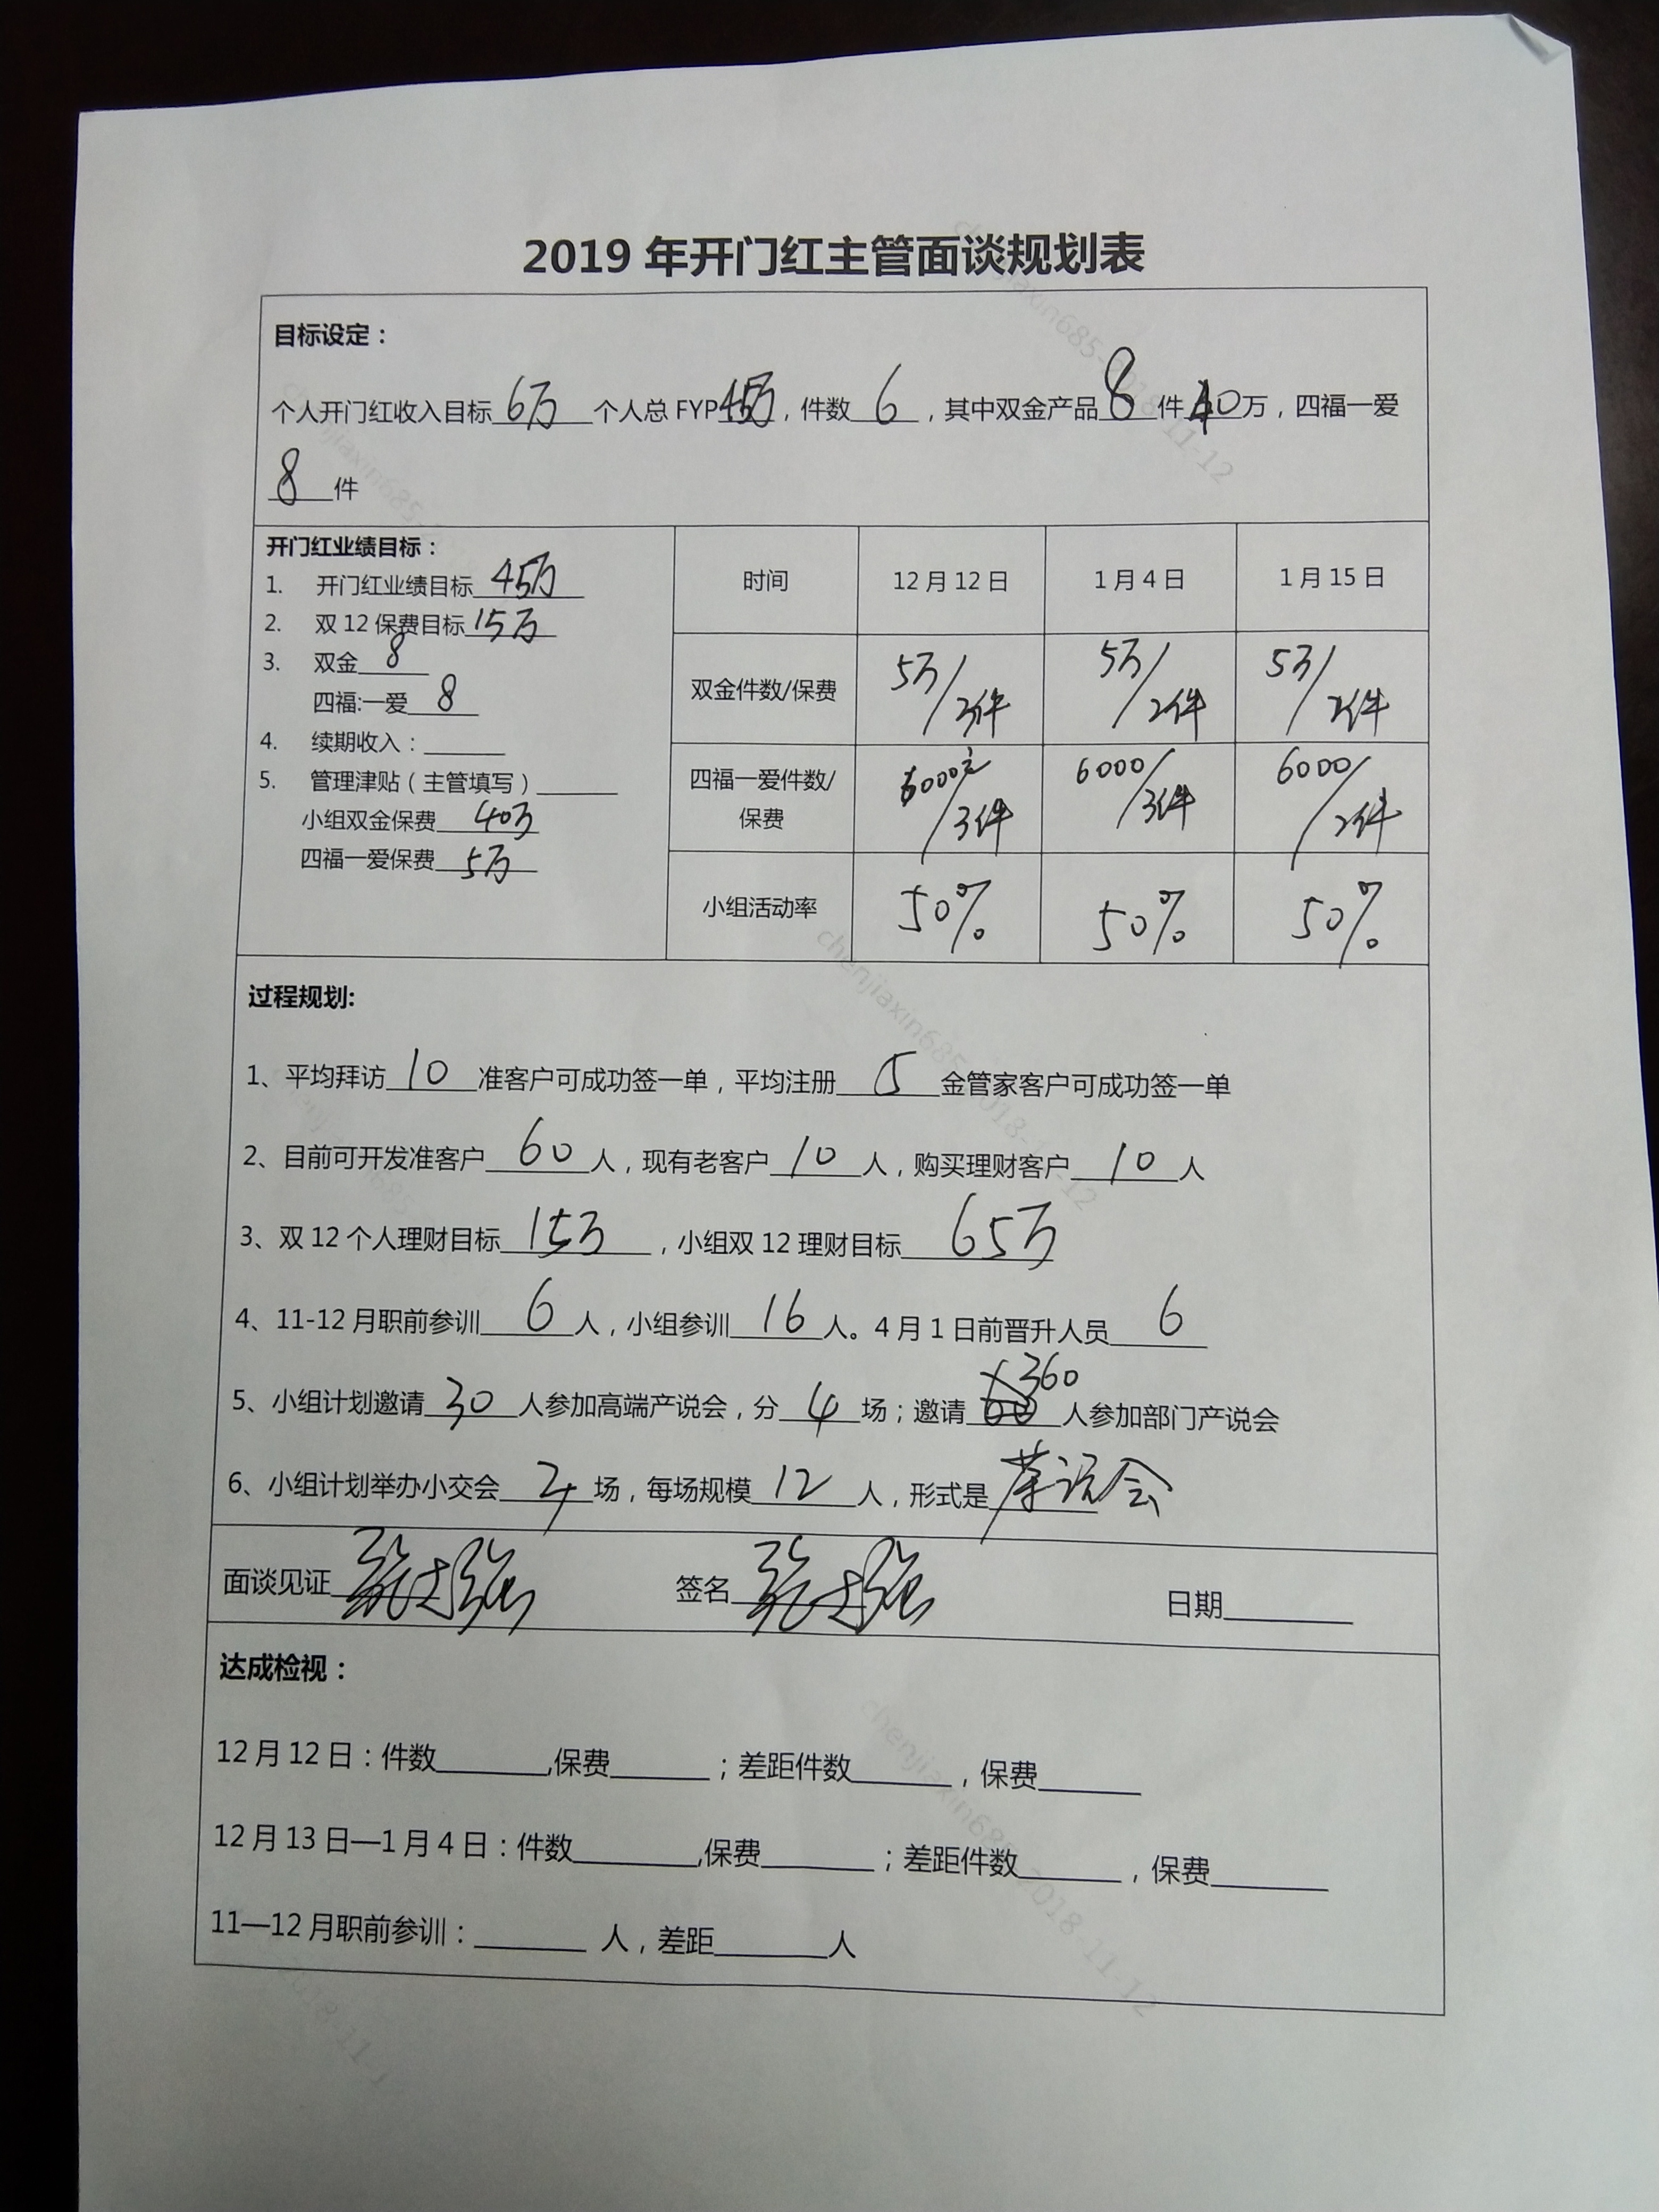 2019 年开门红主管面谈规划表
目标设定：
个人开门红收入目标6万 个人总 FYP45万，件数6，其中双金产品8件40万，四福一爱
8件
开门红业绩目标：
1. 开门红业绩目标45万
2. 双 12 保费目标15万
3. 双金8
四福:一爱8
4. 续期收入：
5. 管理津贴（主管填写）
小组双金保费40万
四福一爱保费5万
时间 12 月 12 日 1 月 4 日 1 月 15 日
双金件数/保费 5万/3件 5万/2件 5万/2件
四福一爱件数/保费 6000元/3件 6000/3件 6000/2件
小组活动率 50% 50% 50%
过程规划:
1、平均拜访10准客户可成功签一单，平均注册5金管家客户可成功签一单
2、目前可开发准客户60人，现有老客户10人，购买理财客户10人
3、双 12 个人理财目标15万，小组双 12 理财目标65万
4、11-12 月职前参训6人，小组参训16人。4 月 1 日前晋升人员6
5、小组计划邀请30人参加高端产说会，分4场；邀请360人参加部门产说会
6、小组计划举办小交会24场，每场规模12人，形式是茶说会
面谈见证 签名 日期
达成检视：
12 月 12 日：件数,保费；差距件数，保费
12 月 13 日—1 月 4 日：件数,保费；差距件数，保费
11—12 月职前参训： 人，差距人